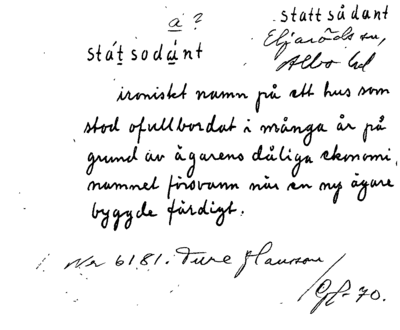 a ?
stattsådant
Eljaröds sn,
Albo hd
státsodánt
ironiskt namn på ett hus som
stod ofullbordat i många år på
grund av ägarens dåliga ekonomi,
namnet försvann när en ny ägare
byggde färdigt.
Nr 6181. Ture Hansson
/Gf-70.